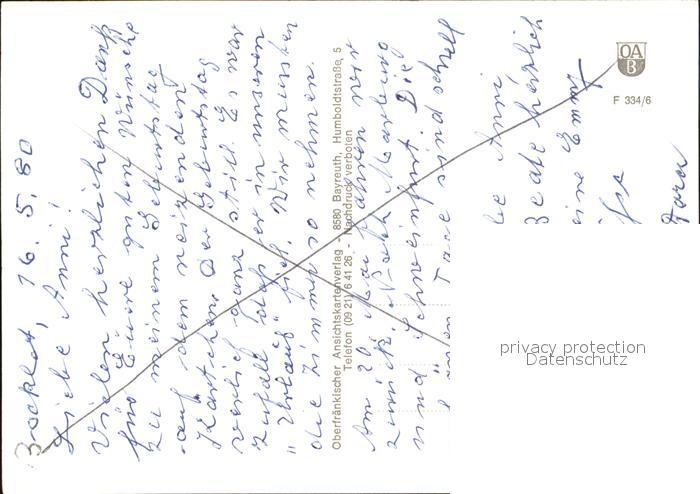 Bocklet, 16. 5. 80
Liebe Anni!
Vielen herzlichen Dank
für Eure guten Wünsche
zu meinem Geburtstag
auf dem reizenden
Kärtchen. Der Geburtstag
verlief ganz still. Es war
Zufall, daß er in unseren
"Urlaub" fiel. Wir mußten
die Zimmer so nehmen.
Oberfränkischer Ansichtskartenverlag - 8580 Bayreuth, Humboldtstraße, 5
Telefon (09 21) 6 41 26 Nachdruck verboten
Am 20. Mai fahren wir
zurück. Nach
und Schweinfurt. Die
Tage sind schnell
be Anni
herzlich
eine Emmy
Dora
OA
B
F 334/6
privacy protection
Datenschutz